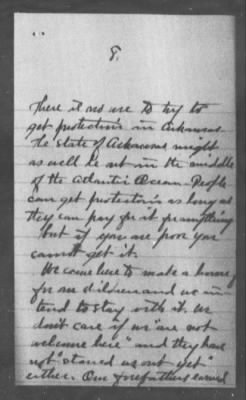 8.
There is no use to try to
get protection in Arkansas
the state of Arkansas might
as well be out in the middle
of the Atlantic Ocean. People
can get protection as long as
they can pay for it or anything
but if you are poor you
cannot get it.
We came here to make a home
for our children and we in-
tend to stay with it. We
don't care if we "are not
welcome here" and they have
not "starved us out yet"
either. Our forefathers earned